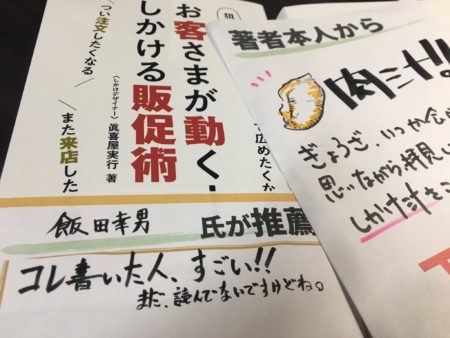 狙
お客さまが動く!
しかける販促術
つい注文したくなる
また来店した
て広めたくな
〈しかけデザイナー〉眞喜屋実行 著
飯田幸男
氏が推薦
コレ書いた人、すごい!!
まだ、読んでないですけどね。
著者本人から
肉ニ
ぎょうざ、いつか食
思いながら拝見し
しかけ